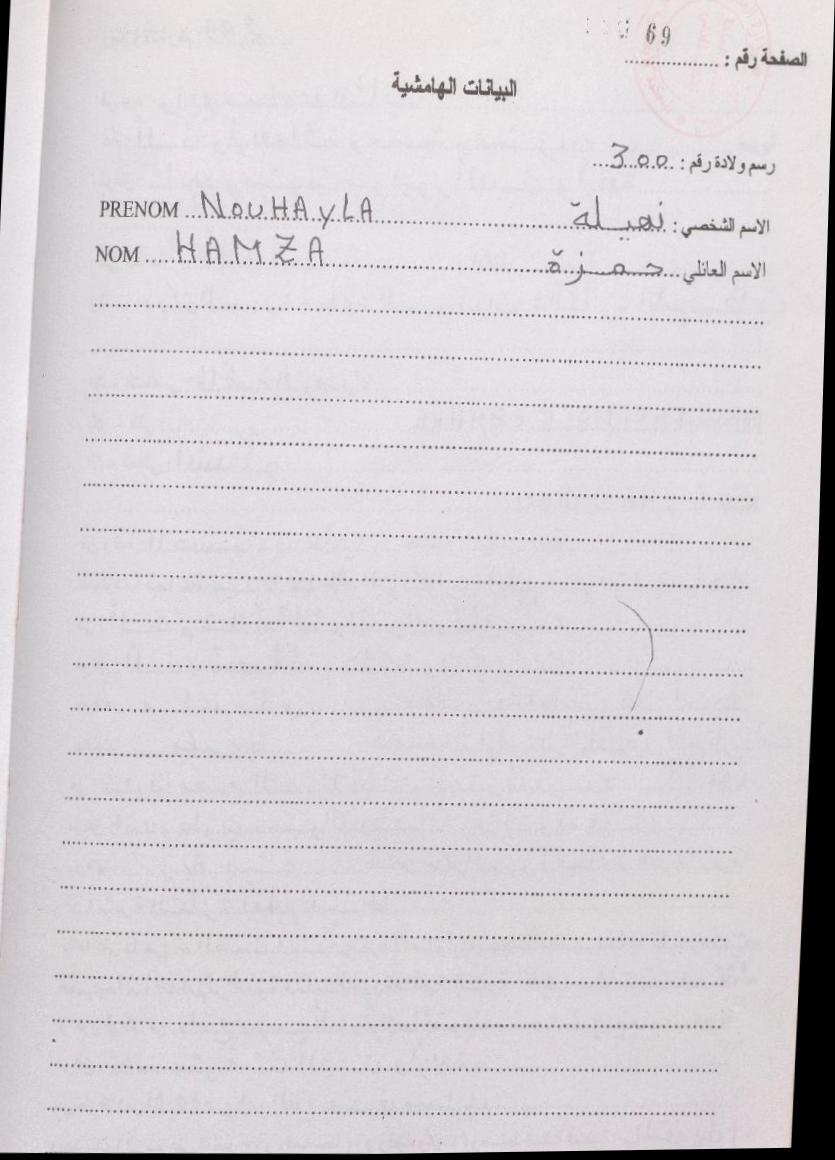 69
الصفحة رقم : ....................
البيانات الهامشية
رسم ولادة رقم : ...300...
PRENOM ...NOUHAyLA............ الاسم الشخصي : نهيلة
NOM ....HAMZA............ الاسم العائلي ...حمزة